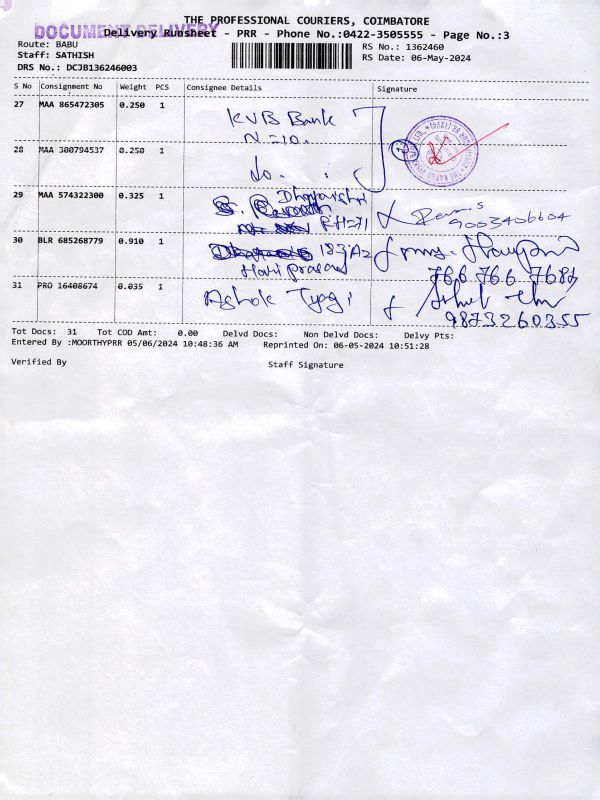 THE PROFESSIONAL COURIERS, COIMBATORE
DOCUMENT DELIVERY
Delivery Runsheet - PRR - Phone No.:0422-3505555 - Page No.:3
Route: BABU
RS No.: 1362460
Staff: SATHISH
RS Date: 06-May-2024
DRS No.: DCJB136246003
S No Consignment No Weight PCS Consignee Details Signature
27 MAA 865472305 0.250 1 KVB Bank
N=10.
28 MAA 300794537 0.250 1 do.
29 MAA 574322300 0.325 1 Dhayarshri
FH=71 9003406604
30 BLR 685268779 0.910 1 183/A2
Hari prasad 766 766 7687
31 PRO 16408674 0.035 1 Ashok Tyagi
9873260355
Tot Docs: 31 Tot COD Amt: 0.00 Delvd Docs: Non Delvd Docs: Delvy Pts:
Entered By :MOORTHYPRR 05/06/2024 10:48:36 AM Reprinted On: 06-05-2024 10:51:28
Verified By Staff Signature